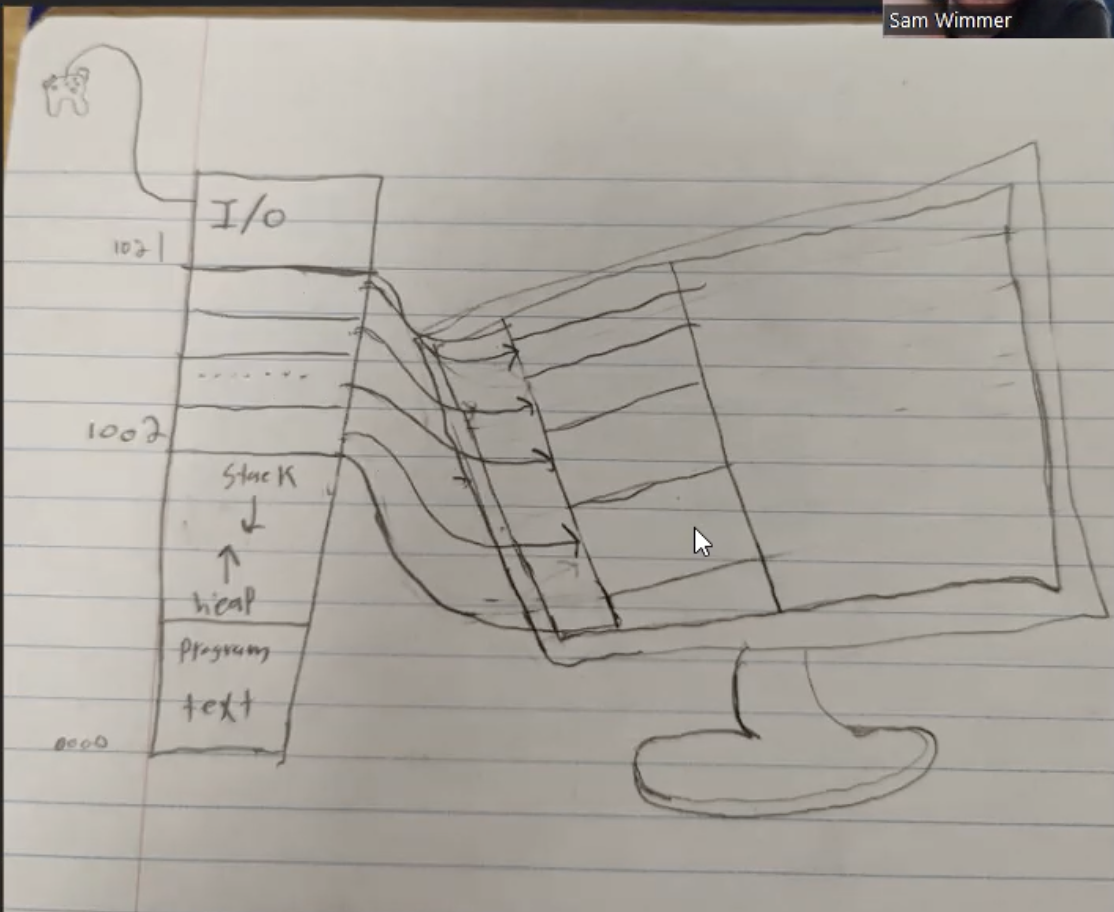 Sam Wimmer
I/O
1021
1002
Stack
heap
Program
text
0000